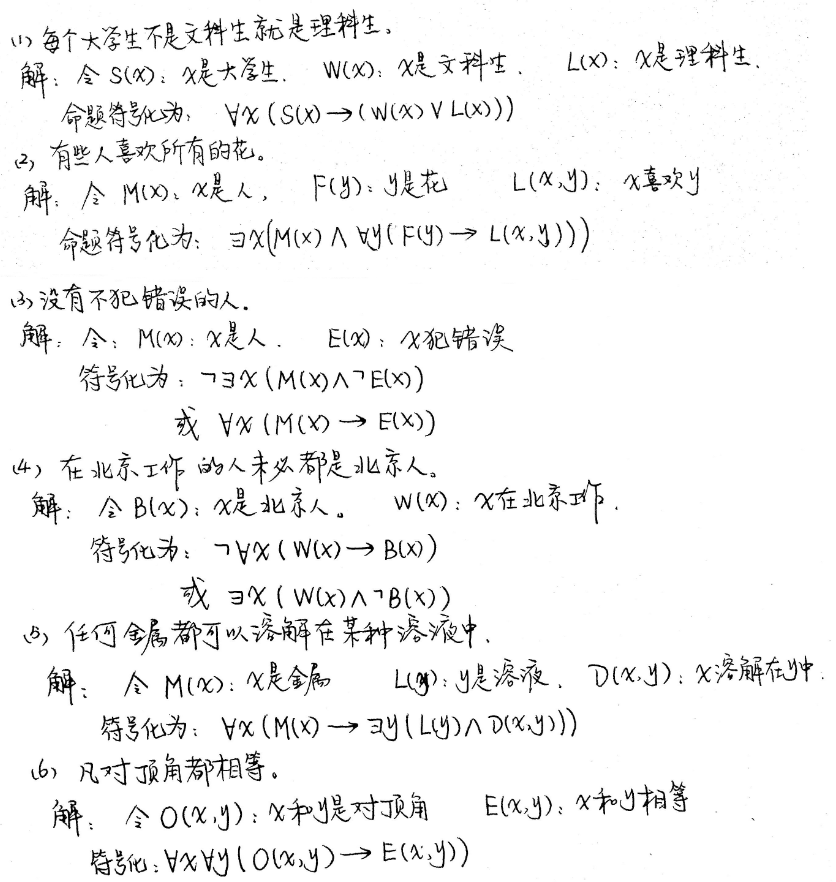 (1) 每个大学生不是文科生就是理科生。
解: 令 S(x): x是大学生. W(x): x是文科生. L(x): x是理科生.
命题符号化为: ∀x(S(x)→(W(x)∨L(x)))
(2) 有些人喜欢所有的花。
解: 令 M(x): x是人, F(y): y是花 L(x,y): x喜欢y
命题符号化为: ∃x(M(x)∧∀y(F(y)→L(x,y)))
(3) 没有不犯错误的人.
解: 令: M(x): x是人. E(x): x犯错误
符号化为: ¬∃x(M(x)∧¬E(x))
或 ∀x(M(x)→E(x))
(4) 在北京工作的人未必都是北京人。
解: 令B(x): x是北京人。 W(x): x在北京工作.
符号化为: ¬∀x(W(x)→B(x))
或 ∃x(W(x)∧¬B(x))
(5) 任何金属都可以溶解在某种溶液中.
解: 令 M(x): x是金属 L(y): y是溶液. D(x,y): x溶解在y中.
符号化为: ∀x(M(x)→∃y(L(y)∧D(x,y)))
(6) 凡对顶角都相等。
解: 令O(x,y): x和y是对顶角 E(x,y): x和y相等
符号化: ∀x∀y(O(x,y)→E(x,y))